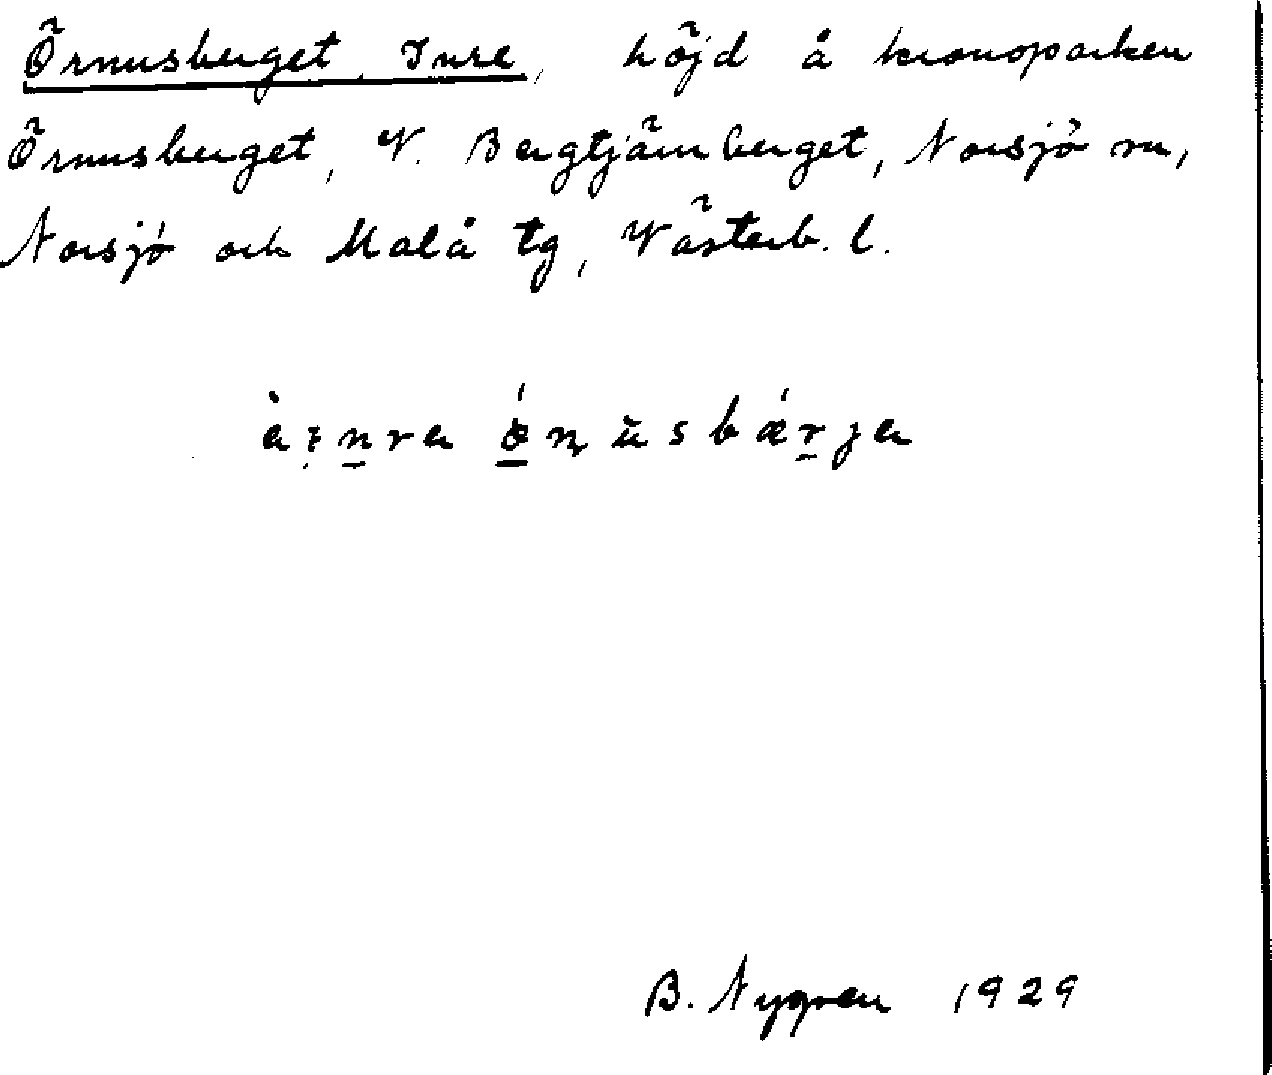 Örnusberget, Inre, höjd å kronoparken
Örnusberget, V. Bergtjärnberget, Norsjö rn,
Norsjö och Malå tg, Västerb. l.
B. Nygren 1929